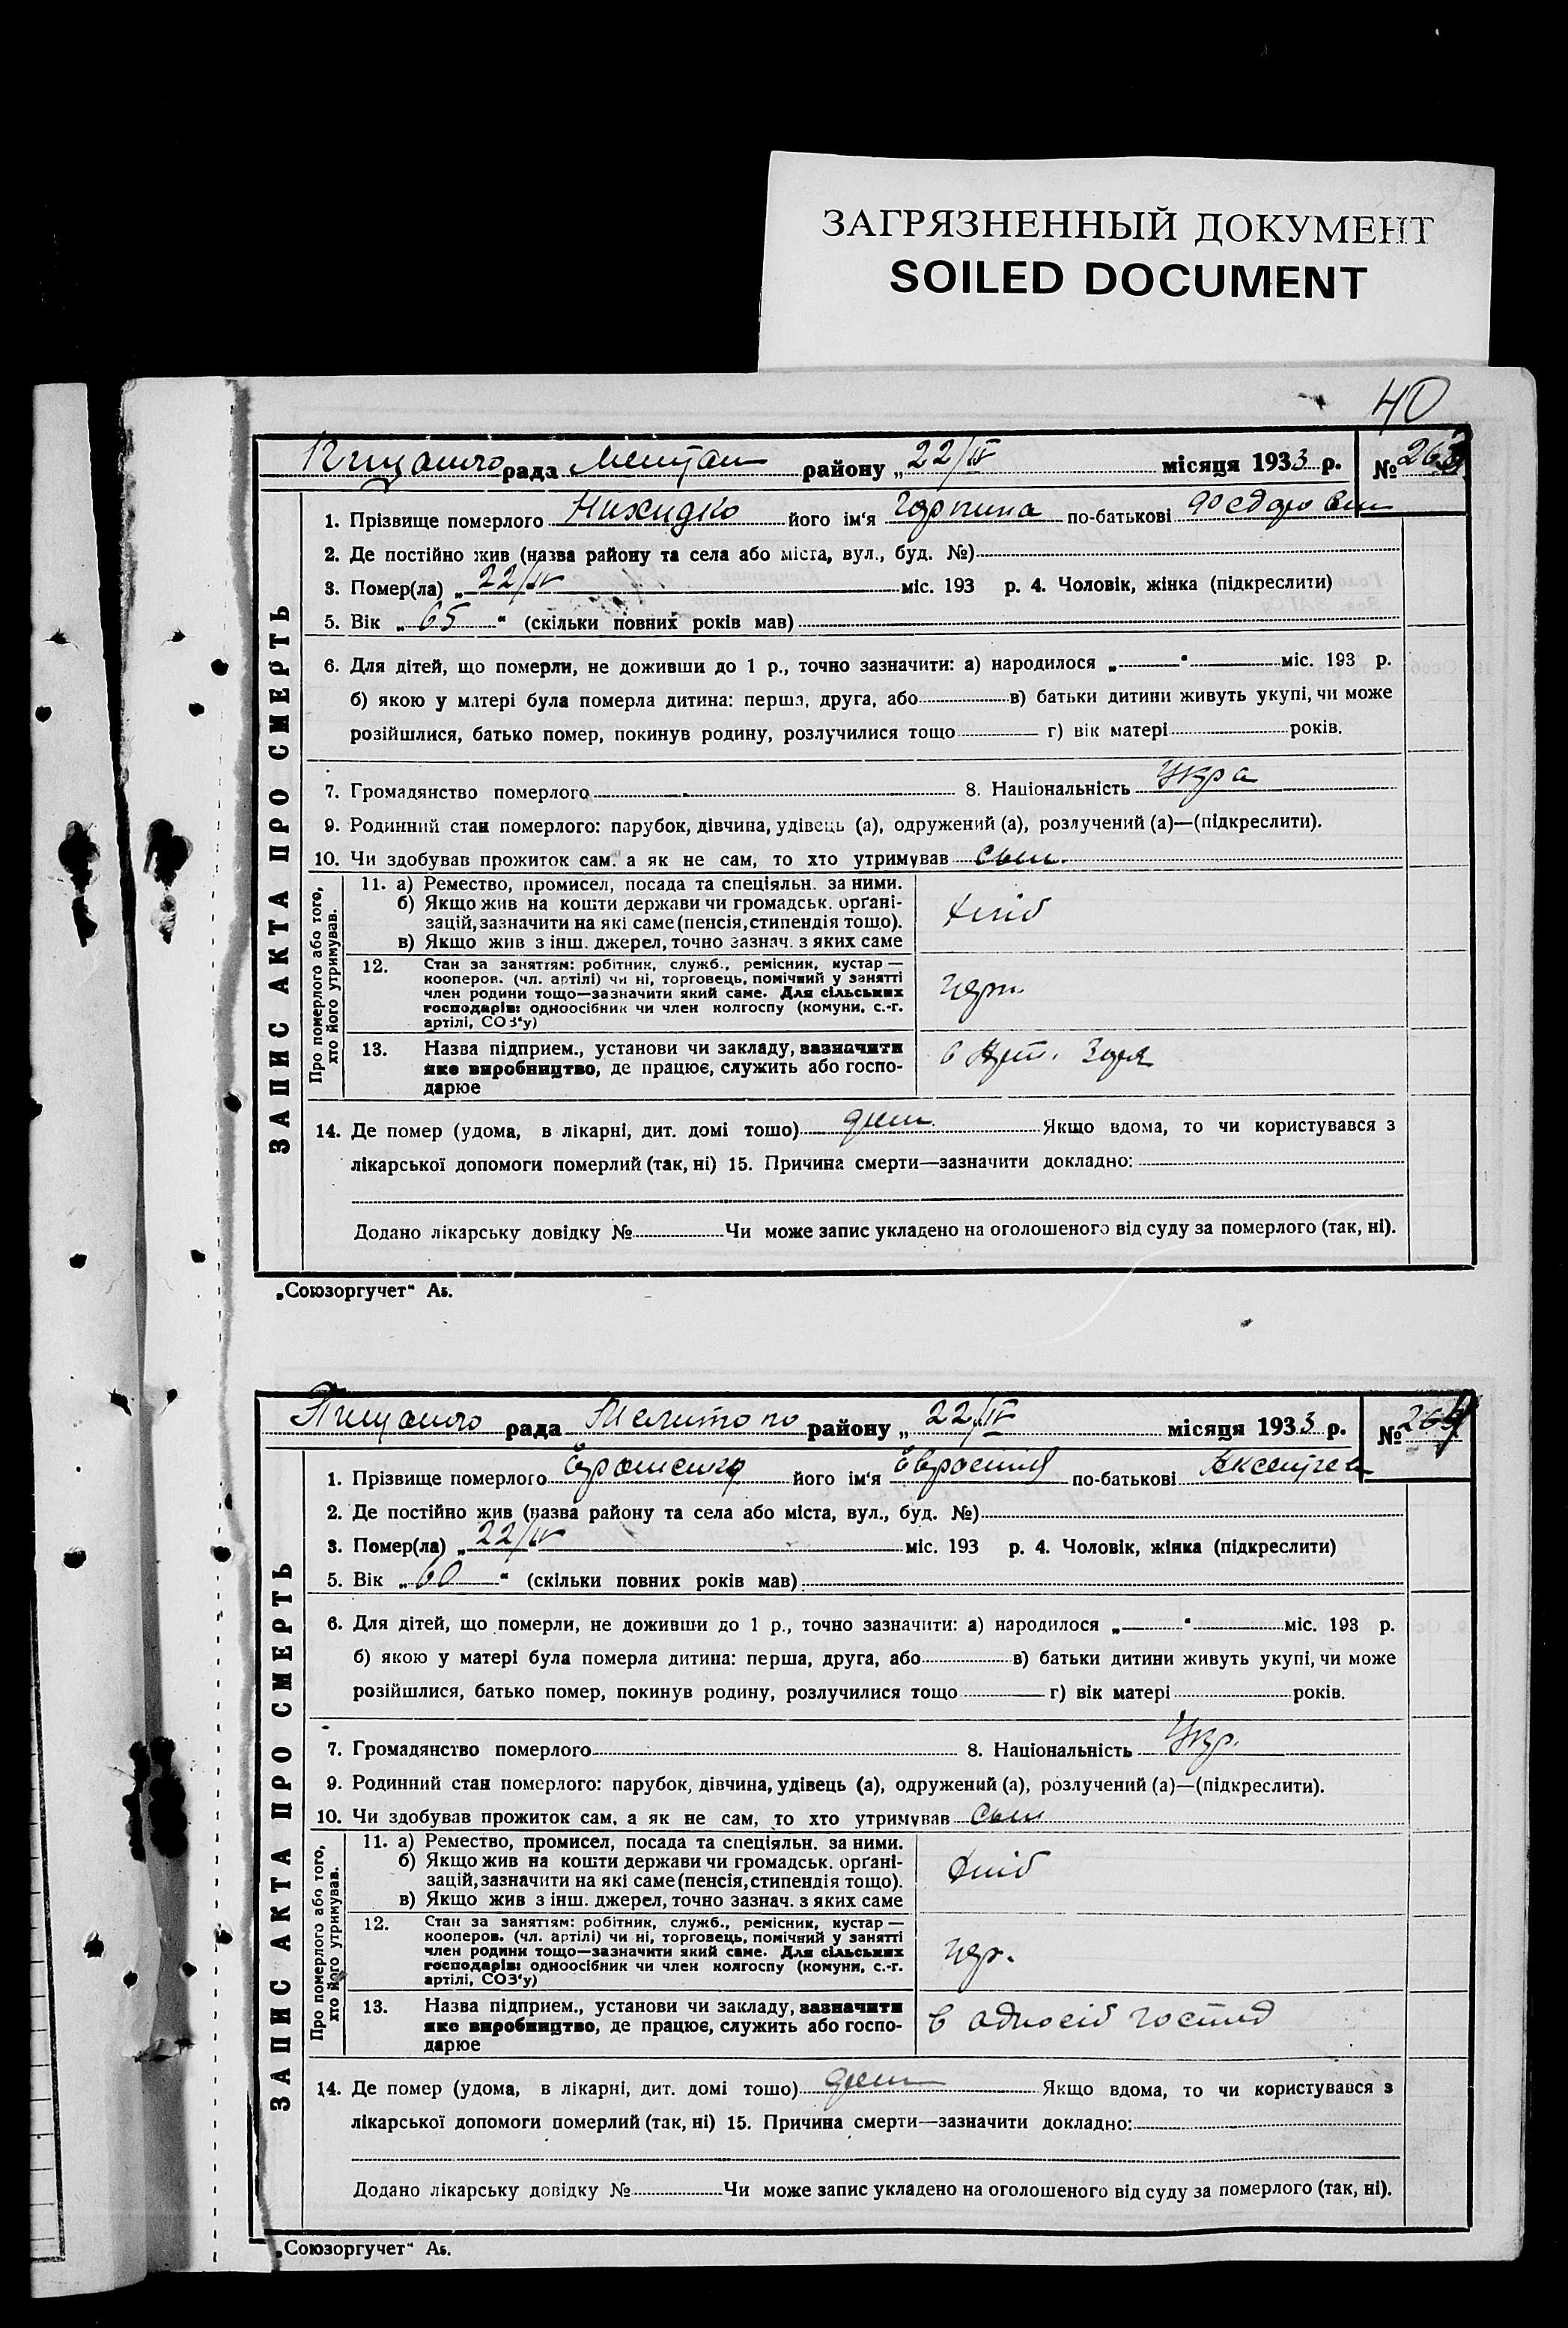 ЗАГРЯЗНЕННЫЙ ДОКУМЕНТ
SOILED DOCUMENT
40
рада району „22/IV місяця 1933 р. № 263
1. Прізвище померлого його ім'я по-батькові
2. Де постійно жив (назва району та села або міста, вул., буд. №)
3. Помер(ла) „22/IV міс. 193 р. 4. Чоловік, жінка (підкреслити)
5. Вік „65“ (скільки повних років мав)
6. Для дітей, що померли, не доживши до 1 р., точно зазначити: а) народилося „ “ міс. 193 р.
б) якою у матері була померла дитина: перша, друга, або в) батьки дитини живуть укупі, чи може
розійшлися, батько помер, покинув родину, розлучилися тощо г) вік матері років.
7. Громадянство померлого 8. Національність Укра
9. Родинний стан померлого: парубок, дівчина, удівець (а), одружений (а), розлучений (а)—(підкреслити).
10. Чи здобував прожиток сам, а як не сам, то хто утримував
ЗАПИС АКТА ПРО СМЕРТЬ
Про померлого або того,
хто його утримував.
11. а) Ремество, промисел, посада та спеціяльн. за ними.
б) Якщо жив на кошти держави чи громадськ. орґані-
зацій, зазначити на які саме (пенсія, стипендія тощо).
в) Якщо жив з інш. джерел, точно зазнач. з яких саме
хліб
12. Стан за заняттям: робітник, служб., ремісник, кустар —
кооперов. (чл. артілі) чи ні, торговець, помічний у занятті
член родини тощо—зазначити який саме. Для сільських
господарів: одноосібник чи член колгоспу (комуни, с.-г.
артілі, СОЗ'у)
13. Назва підприєм., установи чи закладу, зазначити
яке виробництво, де працює, служить або госпо-
дарюе
14. Де помер (удома, в лікарні, дит. домі тошо) Якщо вдома, то чи користувався з
лікарської допомоги померлий (так, ні) 15. Причина смерти—зазначити докладно:
Додано лікарську довідку № Чи може запис укладено на оголошеного від суду за померлого (так, ні).
„Союзоргучет“ Аб.
рада Мелитопо району „22/IV місяця 1933 р. № 264
1. Прізвище померлого його ім'я по-батькові
2. Де постійно жив (назва району та села або міста, вул., буд. №)
3. Помер(ла) „22/IV міс. 193 р. 4. Чоловік, жінка (підкреслити)
5. Вік „60“ (скільки повних років мав)
6. Для дітей, що померли, не доживши до 1 р., точно зазначити: а) народилося „ “ міс. 193 р.
б) якою у матері була померла дитина: перша, друга, або в) батьки дитини живуть укупі, чи може
розійшлися, батько помер, покинув родину, розлучилися тощо г) вік матері років.
7. Громадянство померлого 8. Національність Укр.
9. Родинний стан померлого: парубок, дівчина, удівець (а), одружений (а), розлучений (а)—(підкреслити).
10. Чи здобував прожиток сам, а як не сам, то хто утримував
ЗАПИС АКТА ПРО СМЕРТЬ
Про померлого або того,
хто його утримував.
11. а) Ремество, промисел, посада та спеціяльн. за ними.
б) Якщо жив на кошти держави чи громадськ. орґані-
зацій, зазначити на які саме (пенсія, стипендія тощо).
в) Якщо жив з інш. джерел, точно зазнач. з яких саме
хліб
12. Стан за заняттям: робітник, служб., ремісник, кустар —
кооперов. (чл. артілі) чи ні, торговець, помічний у занятті
член родини тощо—зазначити який саме. Для сільських
господарів: одноосібник чи член колгоспу (комуни, с.-г.
артілі, СОЗ'у)
13. Назва підприєм., установи чи закладу, зазначити
яке виробництво, де працює, служить або госпо-
дарюе
в односіб господ
14. Де помер (удома, в лікарні, дит. домі тошо) Якщо вдома, то чи користувався з
лікарської допомоги померлий (так, ні) 15. Причина смерти—зазначити докладно:
Додано лікарську довідку № Чи може запис укладено на оголошеного від суду за померлого (так, ні).
„Союзоргучет“ Аб.